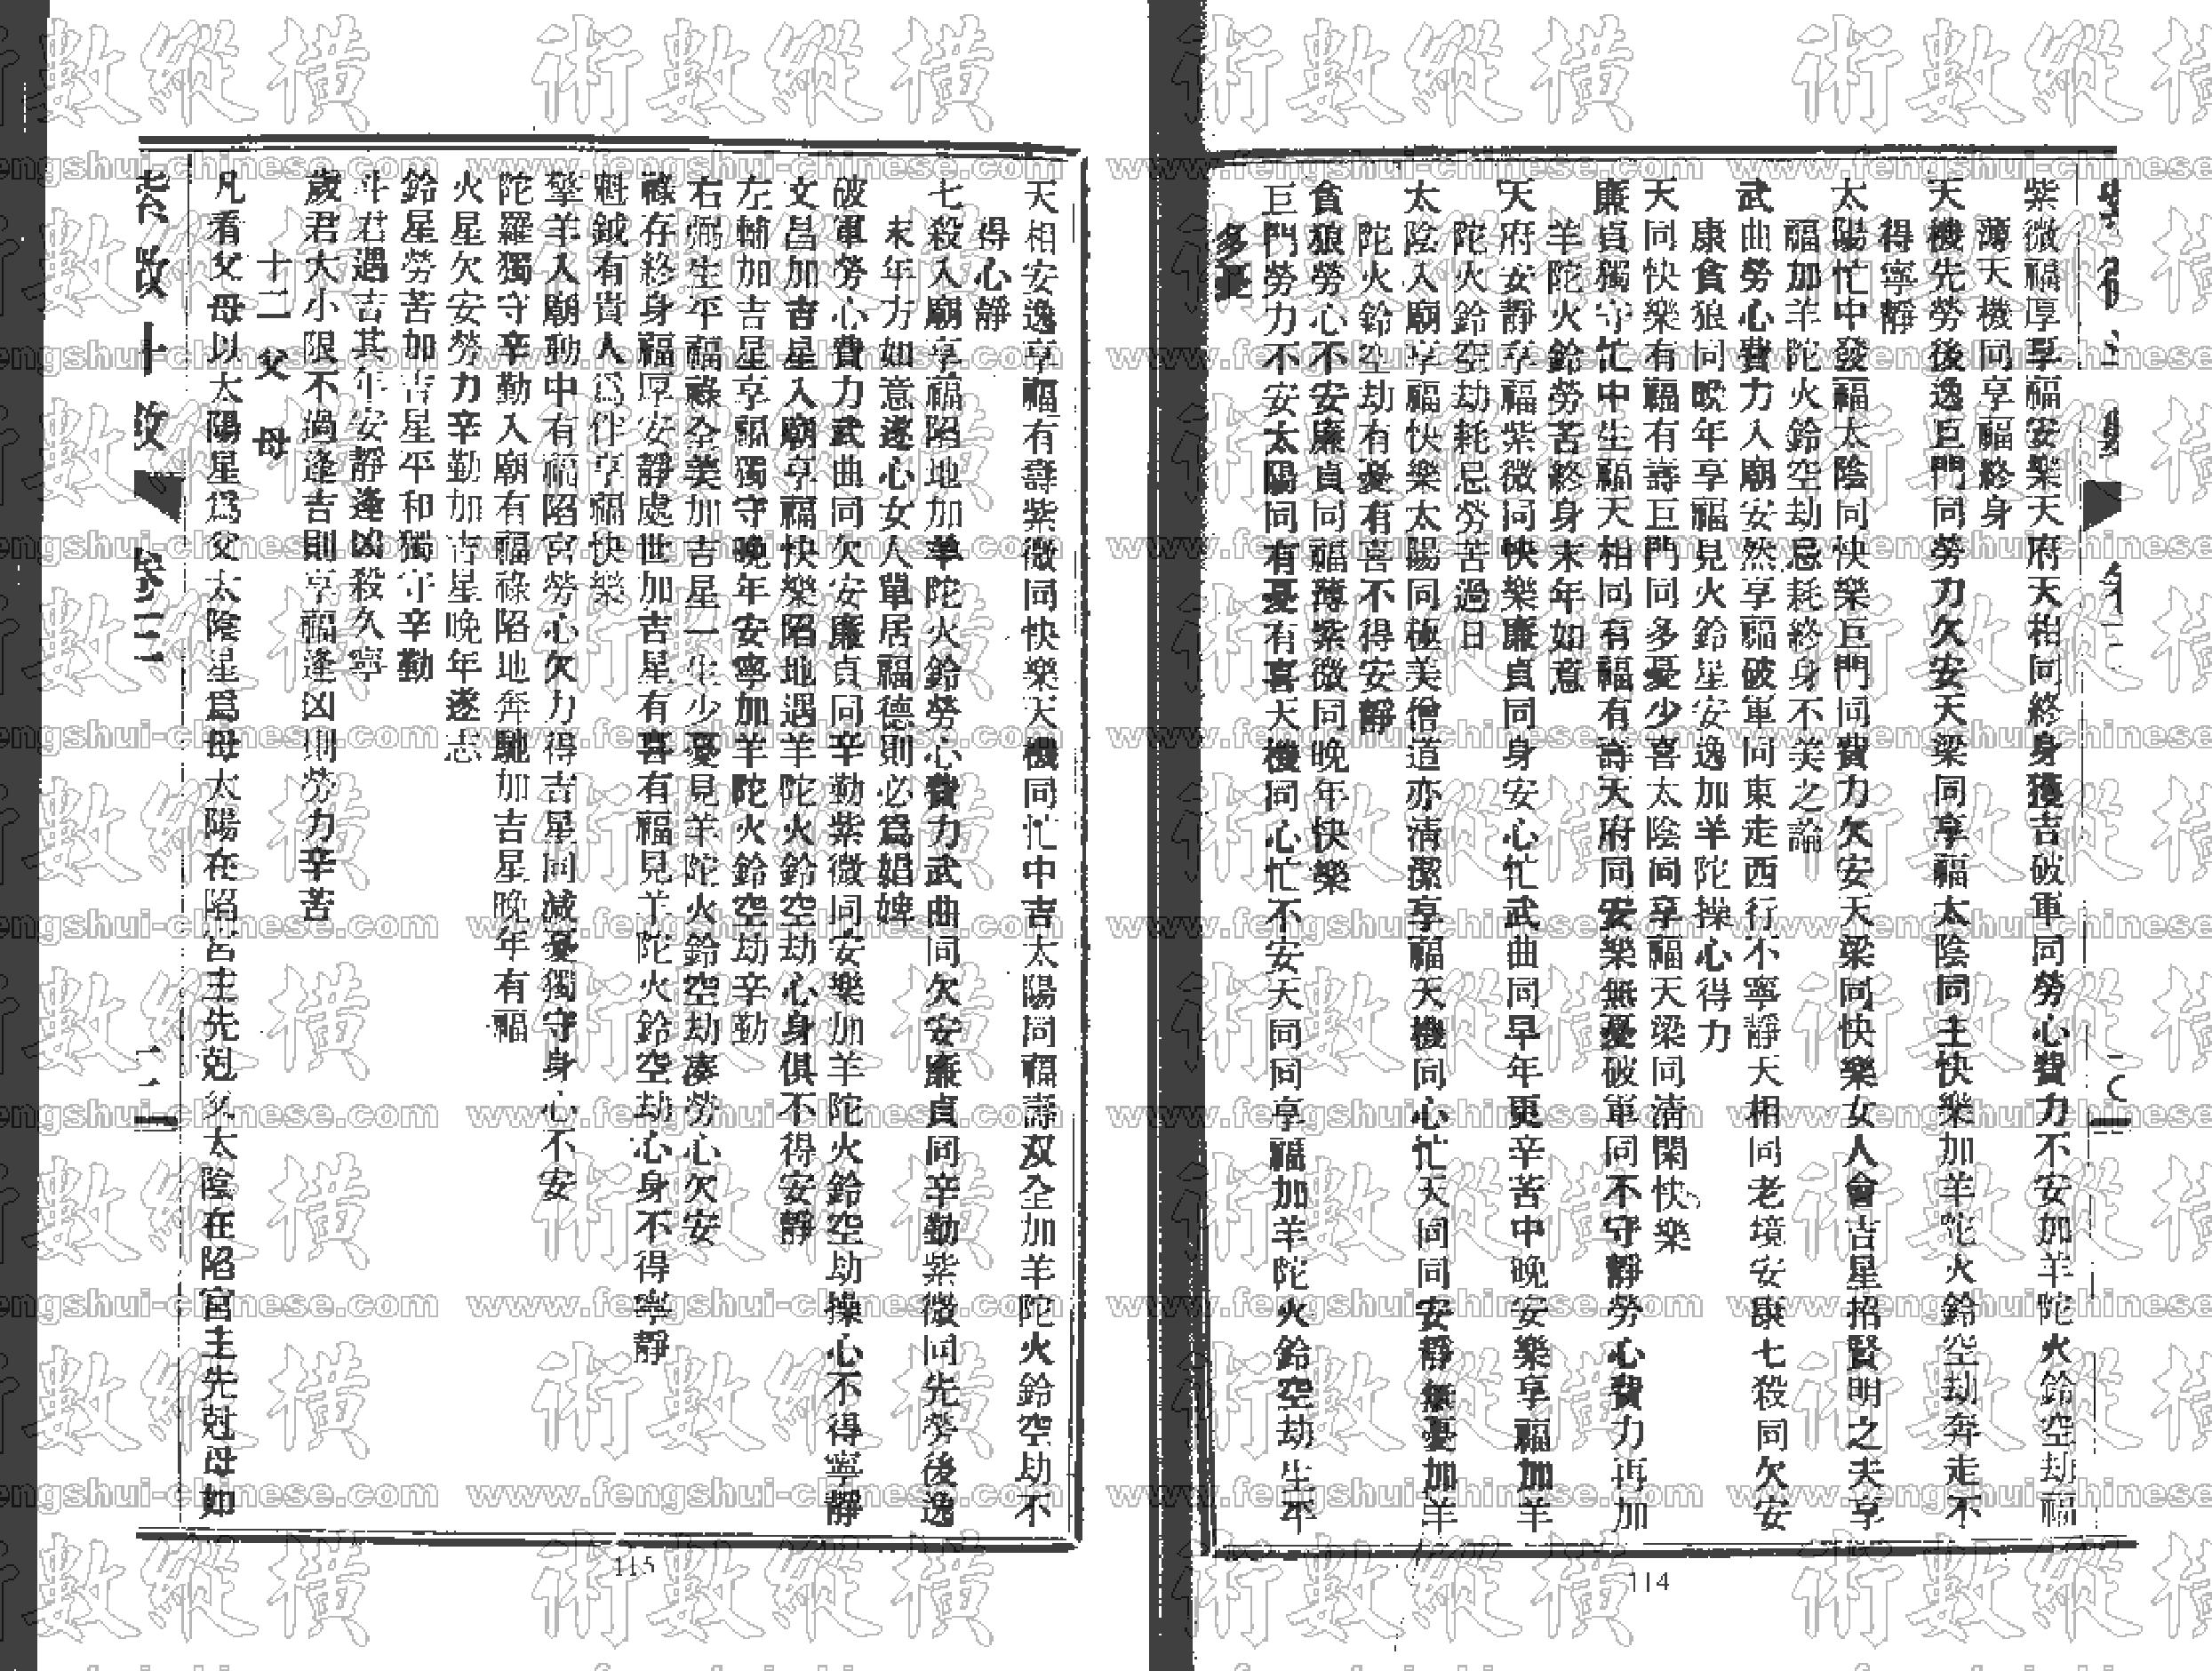 紫微福厚享福安樂天府天相同終身獲吉破軍同勞心費力不安加羊陀火鈴空劫福
薄天機同享福終身
天機先勞後逸巨門同勞力欠安天梁同享福太陰同主快樂加羊陀火鈴空劫奔走不
得寧靜
太陽忙中發福太陰同快樂巨門同費力欠安天梁同快樂女人會吉星招賢明之夫享
福加羊陀火鈴空劫忌耗終身不美之論
武曲勞心費力入廟安然享福破軍同東走西行不寧靜天相同老境安康七殺同欠安
康貪狼同晚年享福見火鈴星安逸加羊陀操心得力
天同快樂有福有壽巨門同多憂少喜太陰同享福天梁同清閑快樂
廉貞獨守忙中生福天相同有福有壽天府同安樂無憂破軍同不守靜勞心費力再加
羊陀火鈴勞苦終身末年如意
天府安靜享福紫微同快樂廉貞同身安心忙武曲同早年更辛苦中晚安樂享福加羊
陀火鈴空劫耗忌勞苦過日
太陰入廟享福快樂太陽同極美僧道亦清潔享福天機同心忙天同同安靜無憂加羊
陀火鈴空劫有憂有喜不得安靜
貪狼勞心不安廉貞同福薄紫微同晚年快樂
巨門勞力不安太陽同有憂有喜天機同心忙不安天同同享福加羊陀火鈴空劫生平
多憂
114
天相安逸享福有壽紫微同快樂天機同忙中吉太陽同福壽双全加羊陀火鈴空劫不
得心靜
七殺入廟享福陷地加羊陀火鈴勞心費力武曲同欠安廉貞同辛勤紫微同先勞後逸
末年方如意遂心女人單居福德則必為娼婢
破軍勞心費力武曲同欠安廉貞同辛勤紫微同安樂加羊陀火鈴空劫操心不得寧靜
文昌加吉星入廟享福快樂陷地遇羊陀火鈴空劫心身俱不得安靜
左輔加吉星享福獨守晚年安寧加羊陀火鈴空劫辛勤
右弼生平福祿全美加吉星一生少憂見羊陀火鈴空劫湊勞心欠安
祿存終身福厚安靜處世加吉星有喜有福見羊陀火鈴空劫心身不得寧靜
魁鉞有貴人為伴享福快樂
擎羊入廟動中有福陷宮勞心欠力得吉星同減憂獨守身心不安
陀羅獨守辛勤入廟有福祿陷地奔馳加吉星晚年有福
火星欠安勞力辛勤加吉星晚年遂志
鈴星勞苦加吉星平和獨守辛勤
斗君遇吉其年安靜逢凶殺久寧
歲君大小限不過逢吉則享福逢凶則勞力辛苦
十二父母
凡看父母以太陽星為父太陰星為母太陽在陷宮主先剋父太陰在陷宮主先剋母如
卷三
二一
115